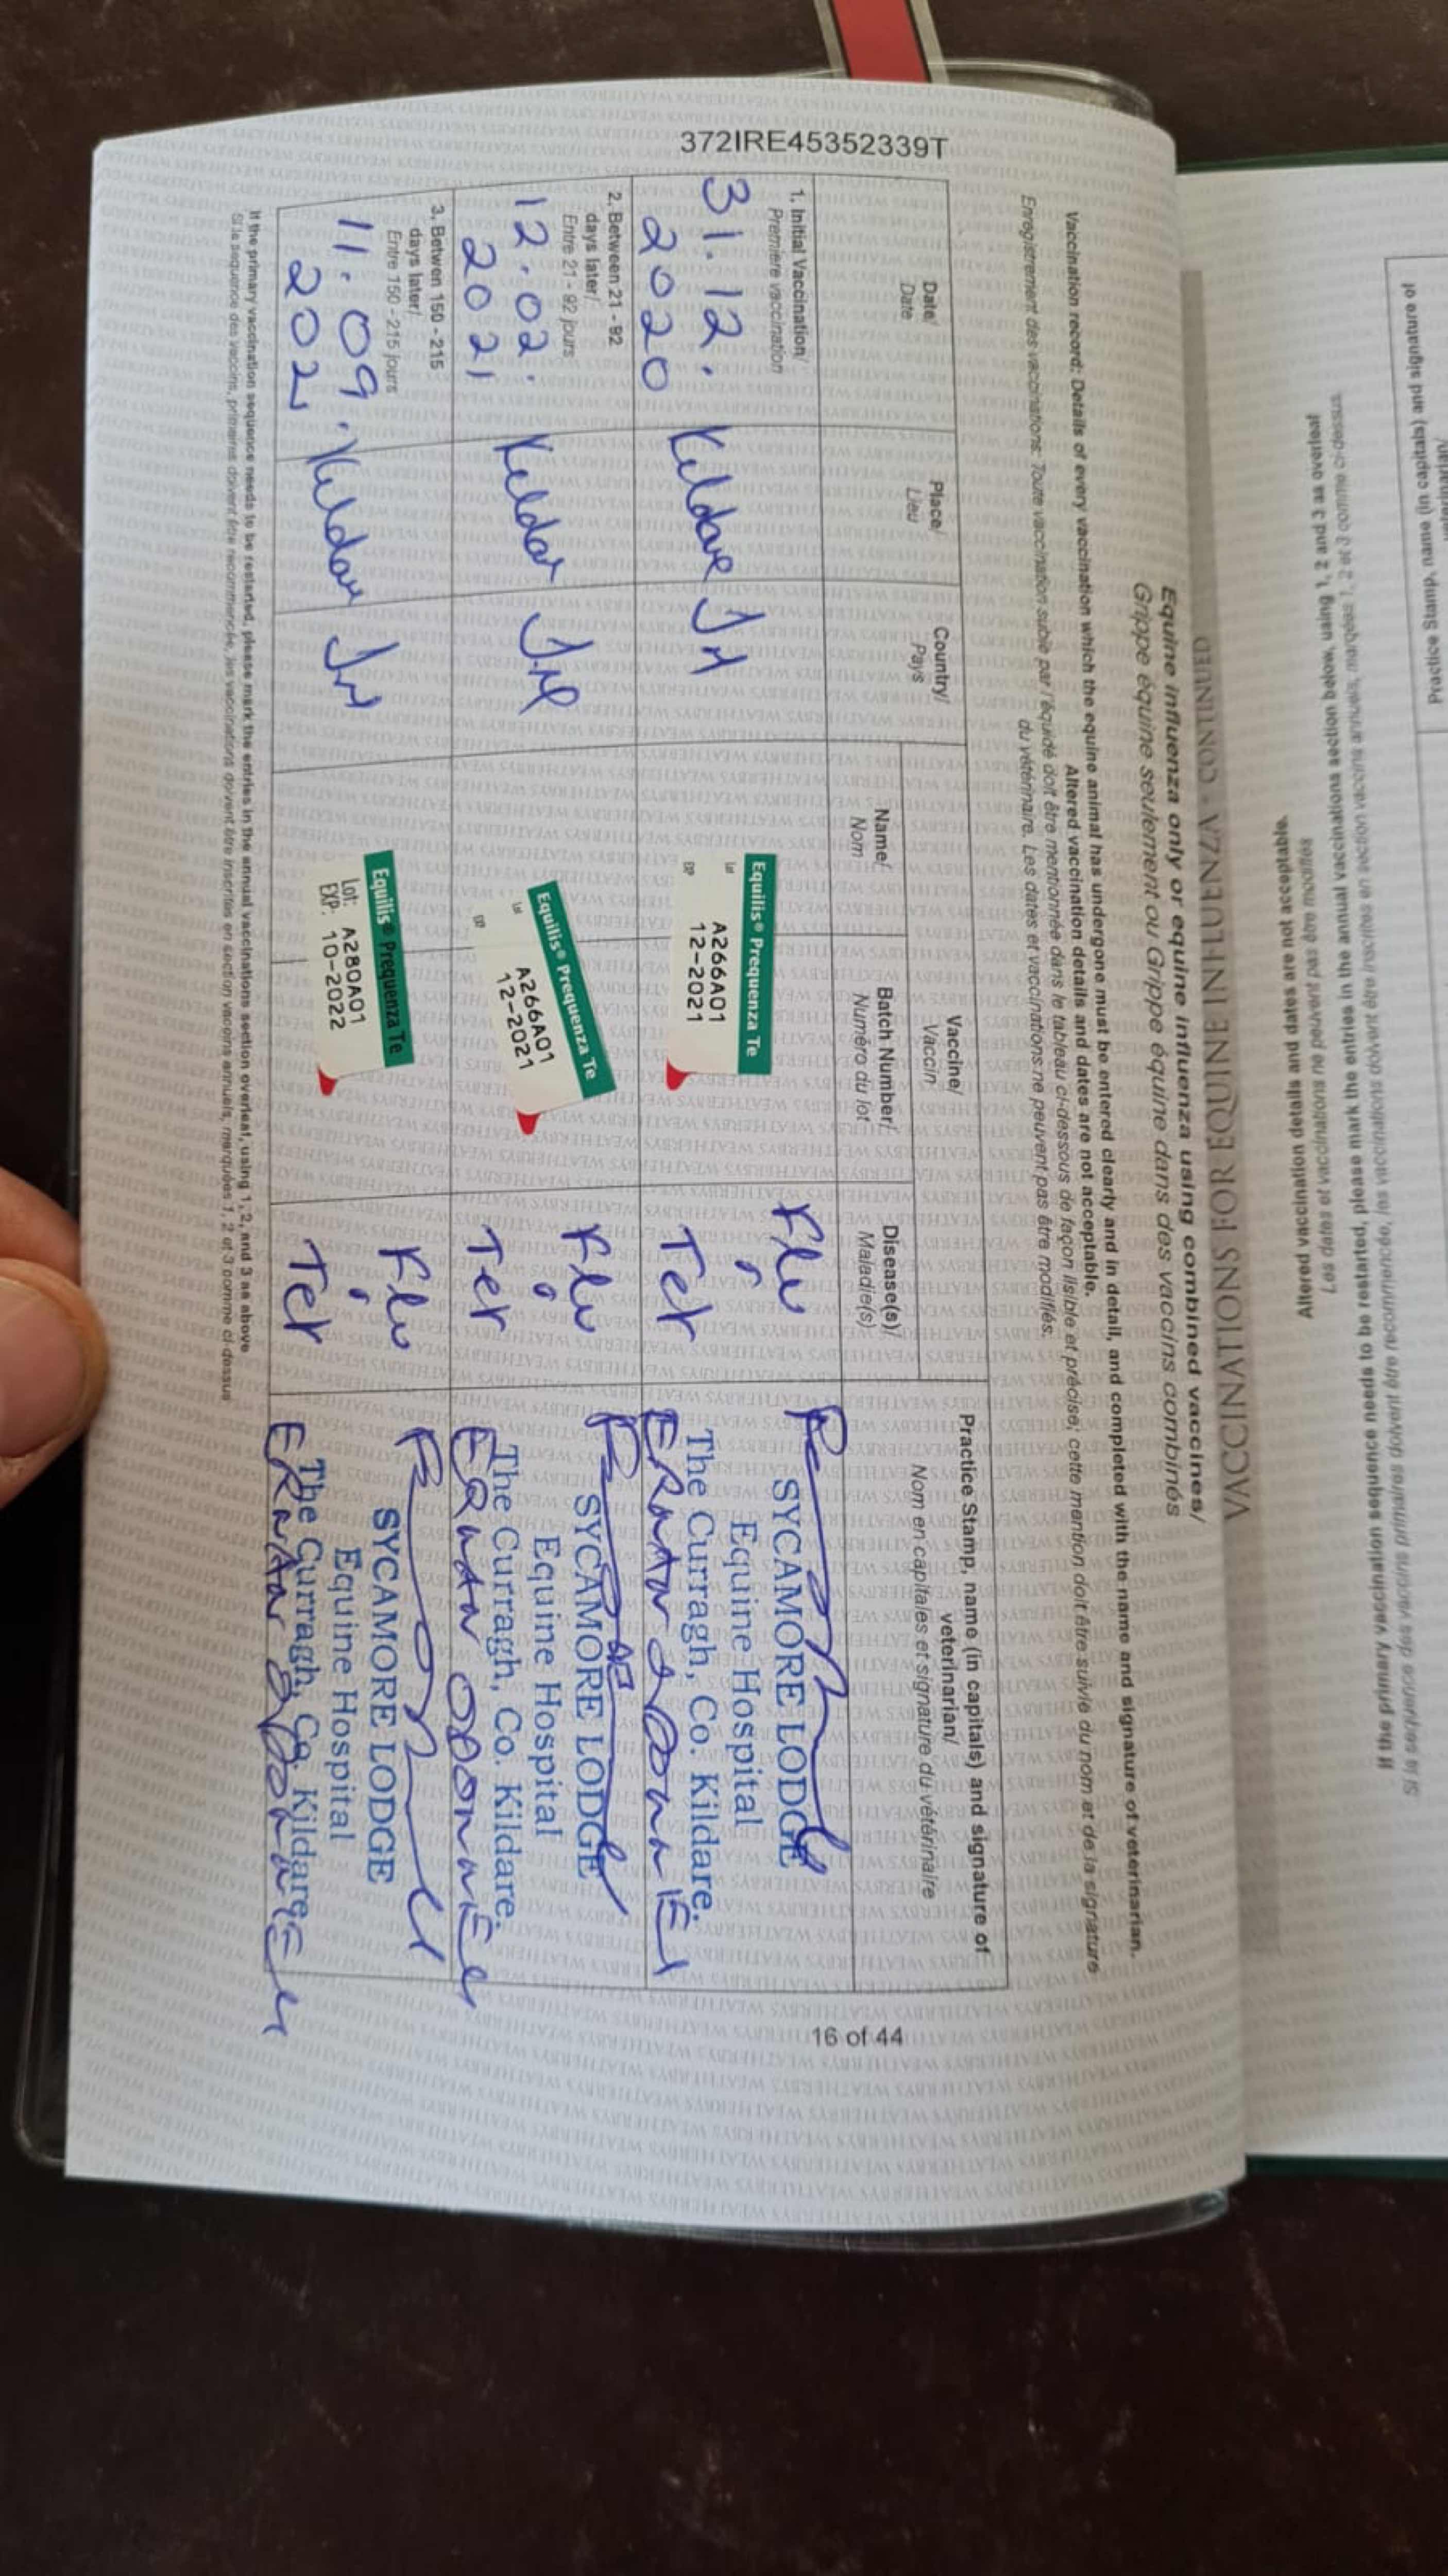 372IRE45352339T
VACCINATIONS FOR EQUINE INFLUENZA - CONTINUED
Equine influenza only or equine influenza using combined vaccines/
Grippe équine seulement ou Grippe équine dans des vaccins combinés
Vaccination record: Details of every vaccination which the equine animal has undergone must be entered clearly and in detail, and completed with the name and signature of veterinarian.
Altered vaccination details and dates are not acceptable.
Enregistrement des vaccinations: Toute vaccination subie par l'équidé doit être mentionnée dans le tableau ci-dessous de façon lisible et précise; cette mention doit être suivie du nom et de la signature
du vétérinaire. Les dates et vaccinations ne peuvent pas être modifiés.
Date/
Date
Place/
Lieu
Country/
Pays
Vaccine/
Vaccin
Name/
Nom
Batch Number/
Numéro du lot
Disease(s)/
Maladie(s)
Practice Stamp, name (in capitals) and signature of
veterinarian/
Nom en capitales et signature du vétérinaire
1. Initial Vaccination/
Premiere vaccination
31.12.
2020
Kildare
Equilis® Prequenza Te
Lot A266A01
EXP 12-2021
Flu
Tet
SYCAMORE LODGE
Equine Hospital
The Curragh, Co. Kildare.
2. Between 21 - 92
days later/
Entre 21 - 92 jours
12.02.
2021
Kildar
Equilis® Prequenza Te
Lot A266A01
EXP 12-2021
Flu
Tet
SYCAMORE LODGE
Equine Hospital
The Curragh, Co. Kildare.
3. Betwen 150 - 215
days later/
Entre 150 - 215 jours
11.09.
2021
Kildar
Equilis® Prequenza Te
Lot: A280A01
EXP: 10-2022
Flu
Tet
SYCAMORE LODGE
Equine Hospital
The Curragh, Co. Kildare.
If the primary vaccination sequence needs to be restarted, please mark the entries in the annual vaccinations section overleaf, using 1, 2, and 3 as above
Si la sequence des vaccins primaires doivent être recommencée, les vaccinations doivent être inscrites en section vaccins annuels, marquées 1, 2 et 3 comme ci-dessus
16 of 44
Practice Stamp, name (in capitals) and signature of
Altered vaccination details and dates are not acceptable.
Les dates et vaccinations ne peuvent pas être modifiés
If the primary vaccination sequence needs to be restarted, please mark the entries in the annual vaccinations section below, using 1, 2 and 3 as overleaf
Si la sequence des vaccins primaires doivent être recommencée, les vaccinations doivent être inscrites en section vaccins annuels, marqées 1, 2 et 3 comme ci-dessus